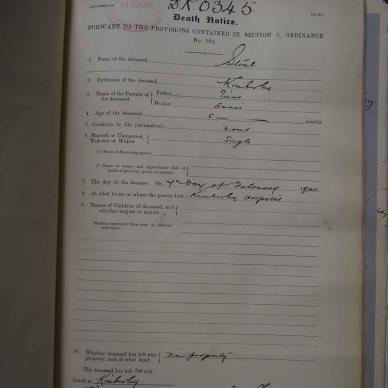 DK 0345
Death Notice.
PURSUANT TO THE PROVISIONS CONTAINED IN SECTION 9, ORDINANCE
No. 104.
1. Name of the deceased
2. Birthplace of the deceased Kimberley
3. Name of the Parents of the deceased. Father
Mother
4. Age of the deceased years months
5. Condition in life (occupation) none
6. Married or Unmarried, Widower or Widow Single
(a) Name of Surviving spouse
(b) Name or names and approximate date of death of previous spouse or spouses
7. The day of the decease. On 4th Day of February
8. At what house or where the person died Kimberley Hospital
9. Names of Children of deceased, and whether majors or minors.
(Stating separately those born of different marriages).
10. Whether deceased has left any property, and of what kind. no property
The deceased has left no will.
Dated at Kimberley